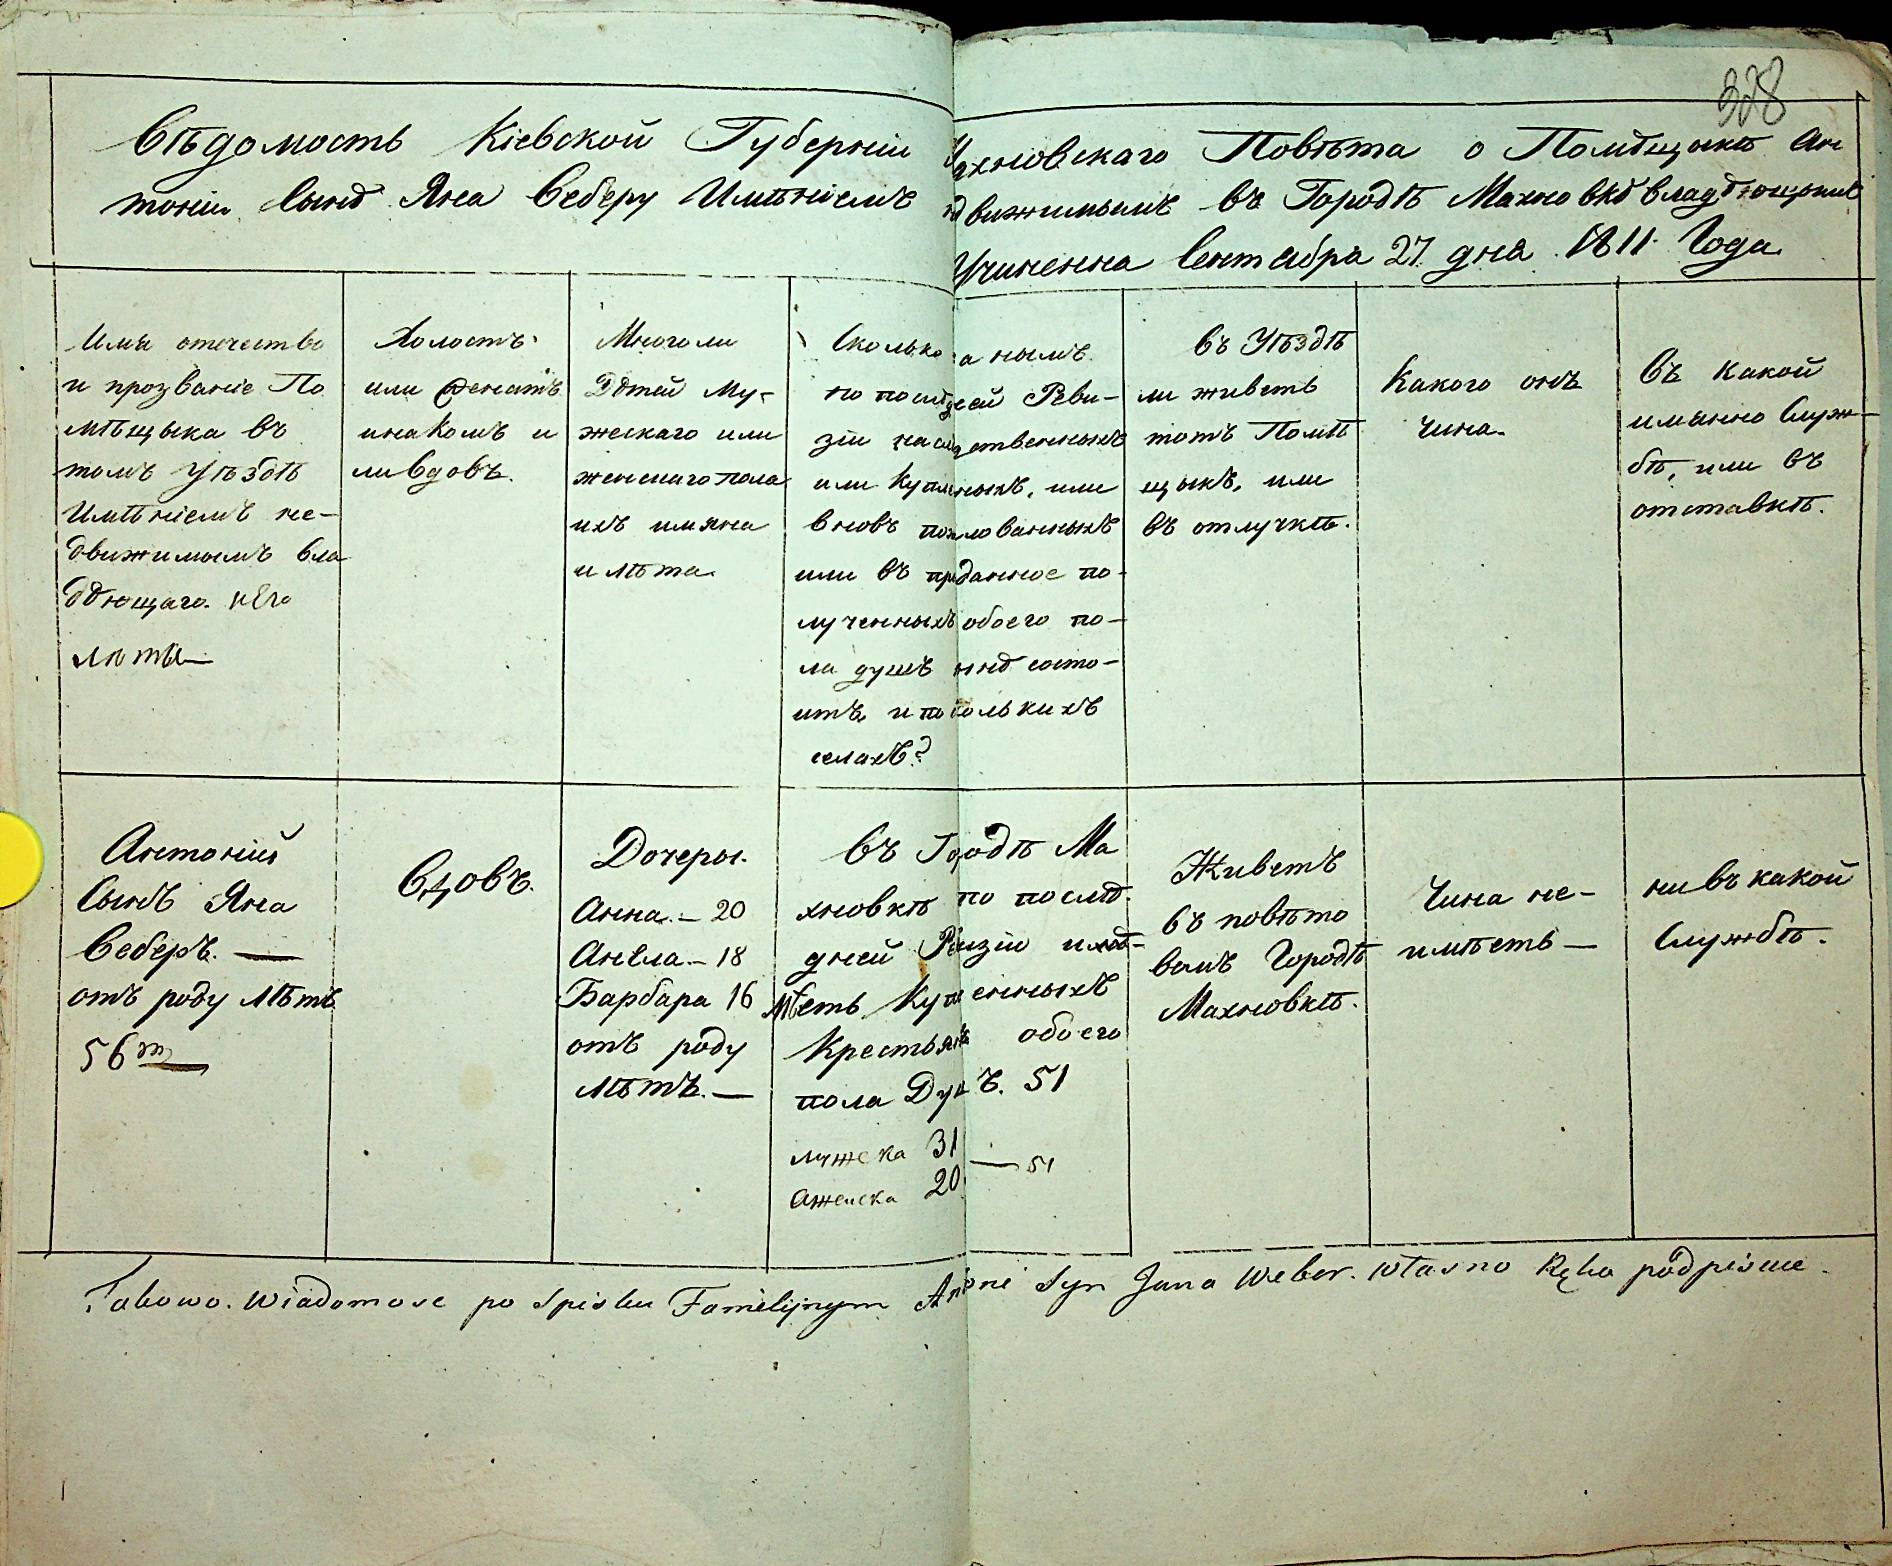 328
Вѣдомость Кіевской Губерніи Махновскаго Повѣта о Помѣщыкѣ Ан
тоніи Сынѣ Яна Веберу Имѣніемъ недвижимымъ въ Городѣ Махновкѣ владѣющымъ
Учиненна Сентября 27 дня 1811 Года
Имя отечество
и прозваніе По
мѣщыка въ
томъ Уѣздѣ
Имѣніемъ не-
движимымъ вла
дѣющаго и его
лѣты
Холостъ
или женатъ
и на комъ и
ли вдовъ.
Много ли
Дѣтей Му-
жескаго или
женскаго пола
ихъ имяна
и лѣта
Сколько за нымъ
по последней Реви-
зіи наследственныхъ
или купленыхъ, или
вновъ пожалованныхъ
или въ приданное по-
лученныхъ обоего по-
ла душъ нынѣ состо-
итъ и по сколькихъ
селахъ?
въ Уѣздѣ
ли живетъ
тотъ Помѣ
щыкъ, или
въ отлучкѣ.
Какого онъ
чина.
Въ какой
имянно Служ-
бѣ, или въ
отставкѣ.
Антоній
Сынъ Яна
Веберъ. —
отъ роду лѣтъ
56т
Вдовъ.
Дочеры.
Анна — 20
Анела — 18
Барбара 16
отъ роду
лѣтъ. —
Въ Городѣ Ма
хновкѣ по послѣд-
дней Ревизіи
имѣетъ Купленныхъ
Крестьянъ обоего
пола Душъ. 51
мужска 31
а женска 20 — 51
Живетъ
въ повѣто
вомъ Городѣ
Махновкѣ.
Чина не-
имѣетъ —
ни въ какой
Службѣ.
Takowo. Wiadomosc po Spisku Familijnym Antoni Syn Jana Weber. własno Ręko podpisuie.